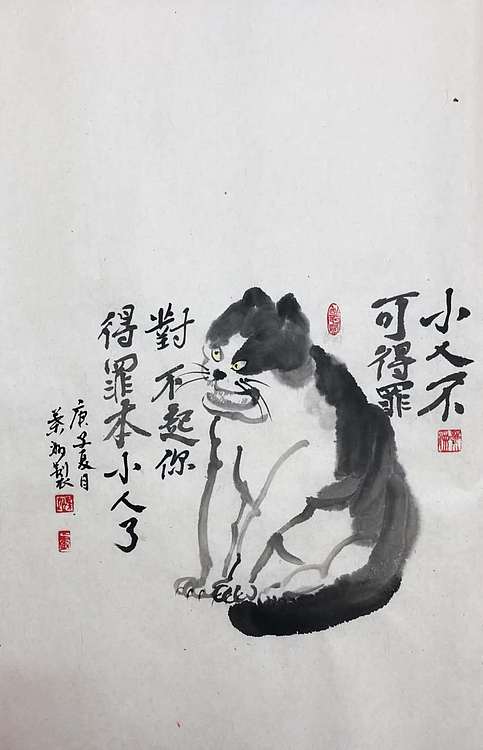 小人不
可得罪
對不起你
得罪本小人了
庚子夏月
製